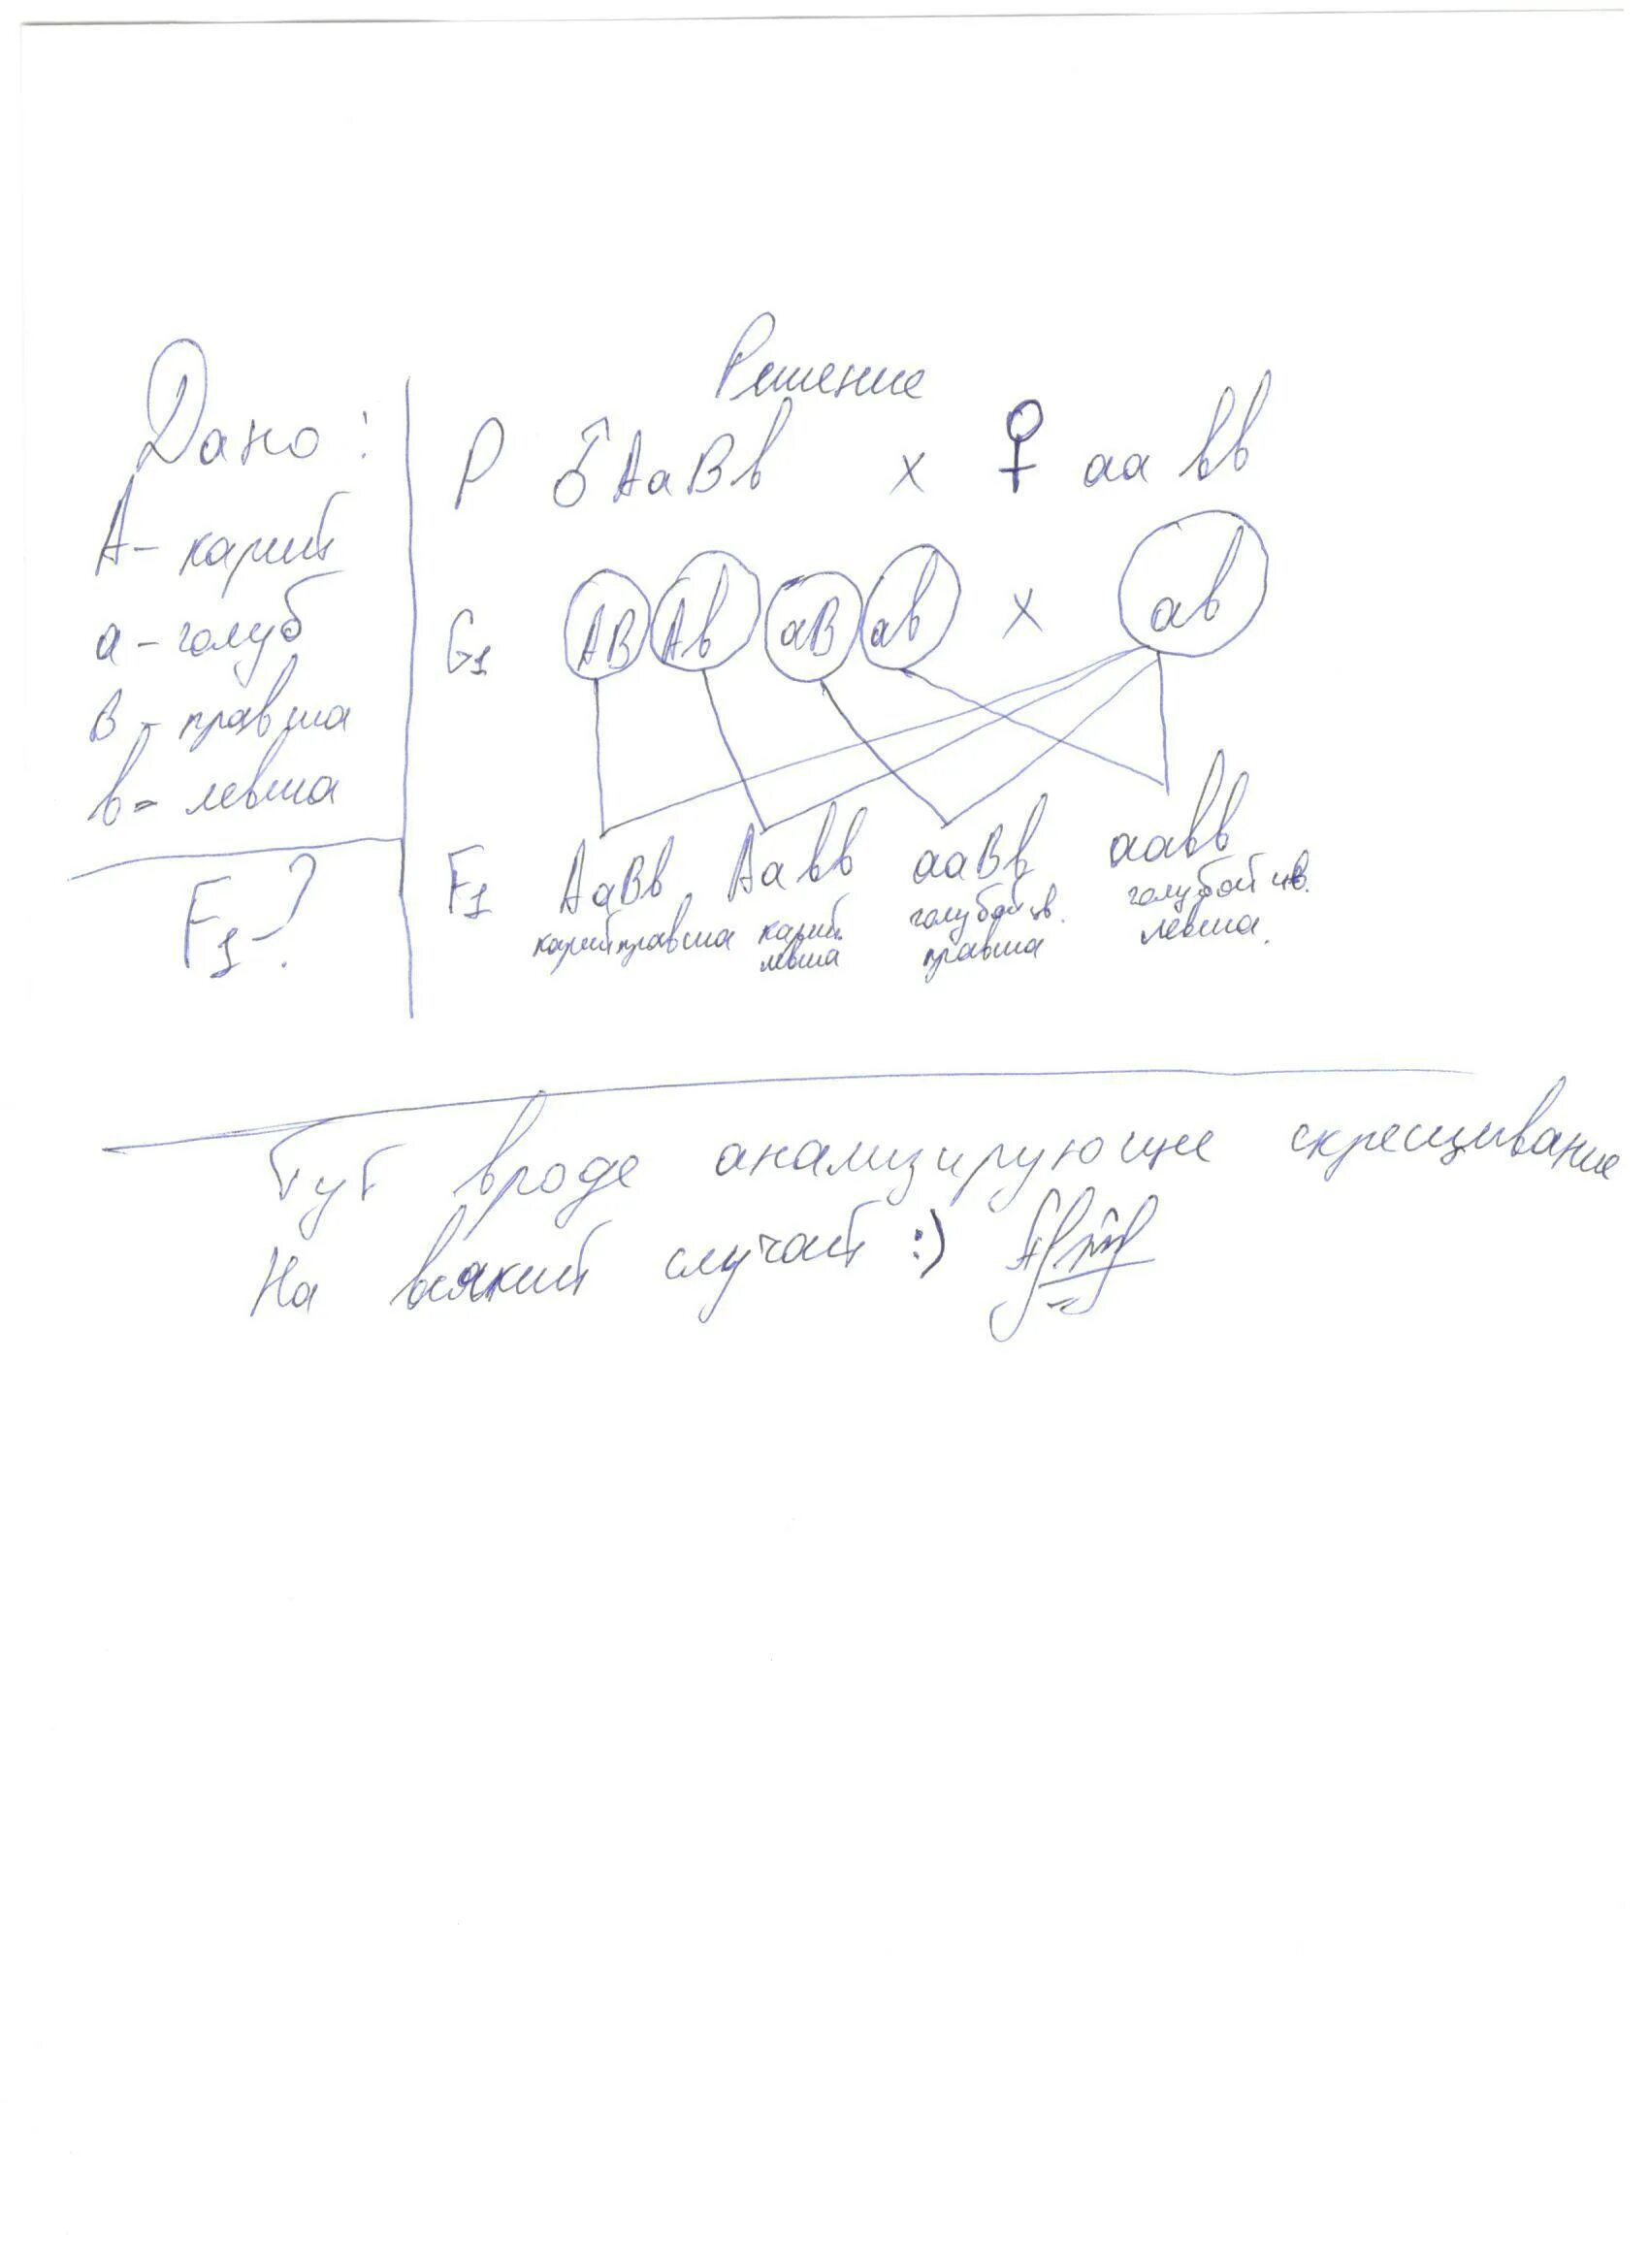 Дано:
А - карий
а - голуб
В - правша
в - левша
F1 - ?
Решение
Р ♂ АаВв х ♀ аа вв
G1 АВ Ав аВ ав х ав
F1 АаВв Аавв ааВв аавв
карий правша карий левша голубой цв. правша голубой цв. левша.
Тут вроде анализирующие скрещивание
На всякий случай :)